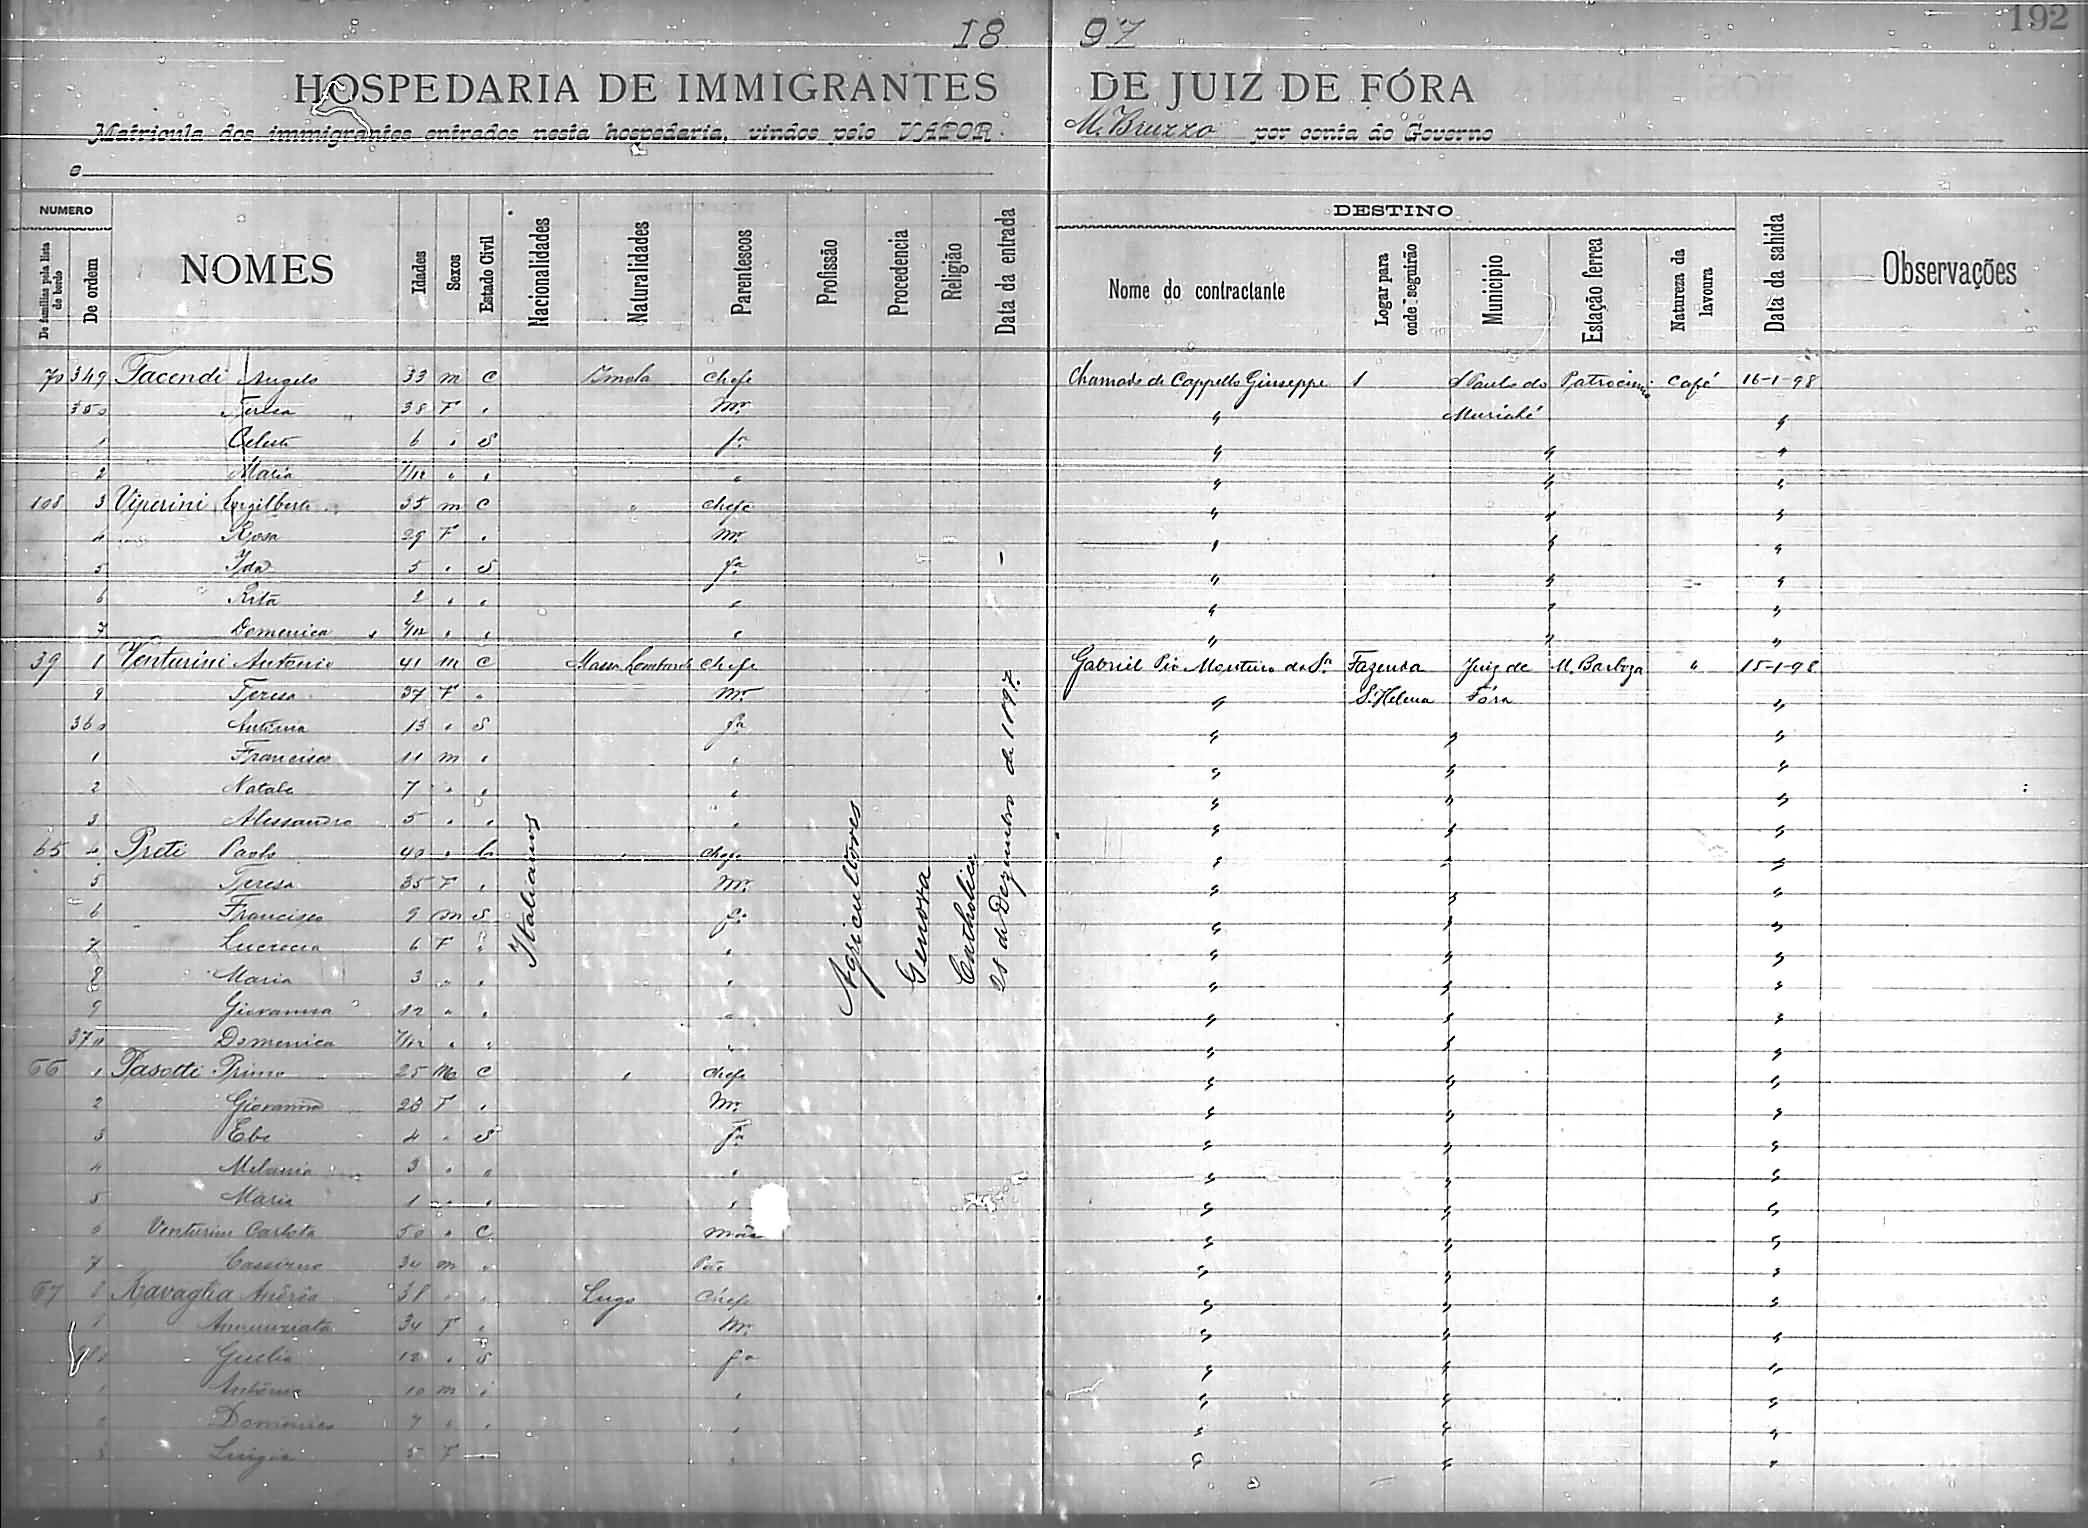 192
18 97
HOSPEDARIA DE IMMIGRANTES DE JUIZ DE FÓRA
Matricula dos immigrantes entrados nesta hospedaria, vindos pelo VAPOR M. Bruzzo por conta do Governo
e
NUMERO DESTINO
De familias pela lista de bordo De ordem NOMES Idades Sexos Estado Civil Nacionalidades Naturalidades Parentescos Profissão Procedencia Religião Data da entrada Nome do contractante Logar para onde seguirão Municipio Estação ferrea Natureza da lavoura Data da sahida Observações
70 349 Facendi Angelo 33 m C Imola Chefe Chamado de Cappello Giuseppe S Paulo do Patrocinio Café 16-1-98
350 Teresa 38 F " Mr. " Muriahé "
1 Celeste 6 " S fa " " "
2 Maria 7/12 " " " " " "
108 3 Viperini 35 m C " Chefe " " "
4 Rosa 29 F " Mr. " " "
5 Ida 5 " S fa " " "
6 Rita 2 " " " " " "
7 Domenica " " " " " "
39 1 Venturini Antonio 41 m C Massa Lombarda Chefe Gabriel Pio Monteiro da Sa. Fazenda Juiz de M. Barboza " 15-1-98
9 Teresa 37 F " Mr " S. Helena Fóra "
360 Antonia 13 " S fa " " "
1 Francisco 11 m " " " " "
2 Natale 7 " " " " " "
3 Alessandro 5 " " " " " "
65 4 Preti Paolo 40 " C " Chefe " " "
5 Teresa 35 F " Mr. " " "
6 Francisco 9 m S fo " " "
7 Lucrecia 6 F " " " " "
8 Maria 3 " " " " " "
9 Giovanna 12 " " " " " "
370 Domenica 7/12 " " " " " "
66 1 Pasotti Primo 25 M C " Chefe " " "
2 Giovanna 23 F " Mr. " " "
3 Ebe 4 " S fa " " "
4 Melania 3 " " " " " "
5 Maria 1 " " " " " "
6 Venturini Carlota 50 " C Mãe " " "
7 34 m " " " "
67 8 Ravaglia Andréa 38 " " Lugo Chefe " " "
Annunziata 34 F " Mr. " " "
12 " S fa " " "
1 Antonio 10 m " " " " "
2 7 " " " " " "
3 Luigia 5 F " " " "
Italianos
Agricultores
Genova
Catholica
28 de Dezembro de 1897.